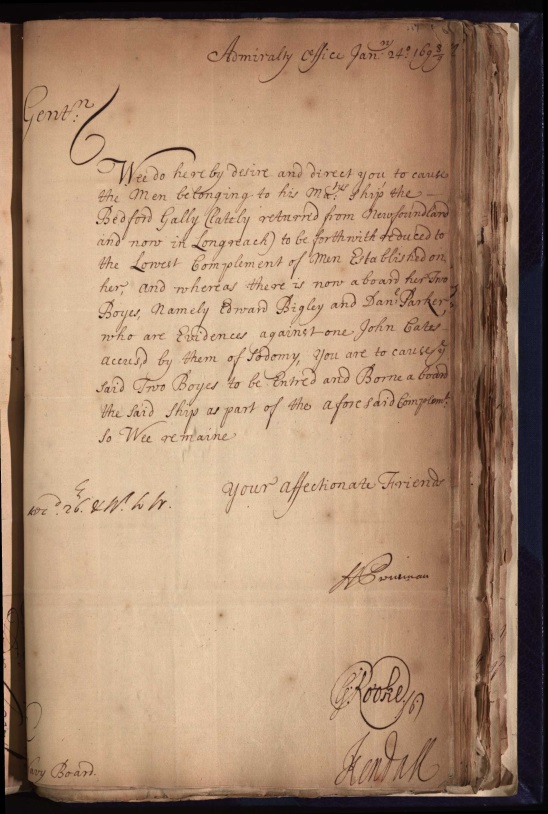 Admiralty Office Jan.ry 24.o 169 8/9
Gent.n
Wee do hereby desire and direct you to cause
the Men belonging to his Ma.ts ship the
Bedford Gally (lately returned from Newfoundland
and now in Longreach) to be forthwith reduced to
the Lowest Complement of Men Established on
her, and whereas there is now aboard her Two
Boyes, Namely Edward Bigley and Dan.l Parker
who are Evidences against one John Cates
accused by them of Sodomy, You are to cause ye
said Two Boyes to be Entred and Borne aboard
the said ship as part of the aforesaid Complem.t
So Wee remaine
Your affectionate Friends
26.
H Priestman
G Rooke
Kendall
Navy Board.